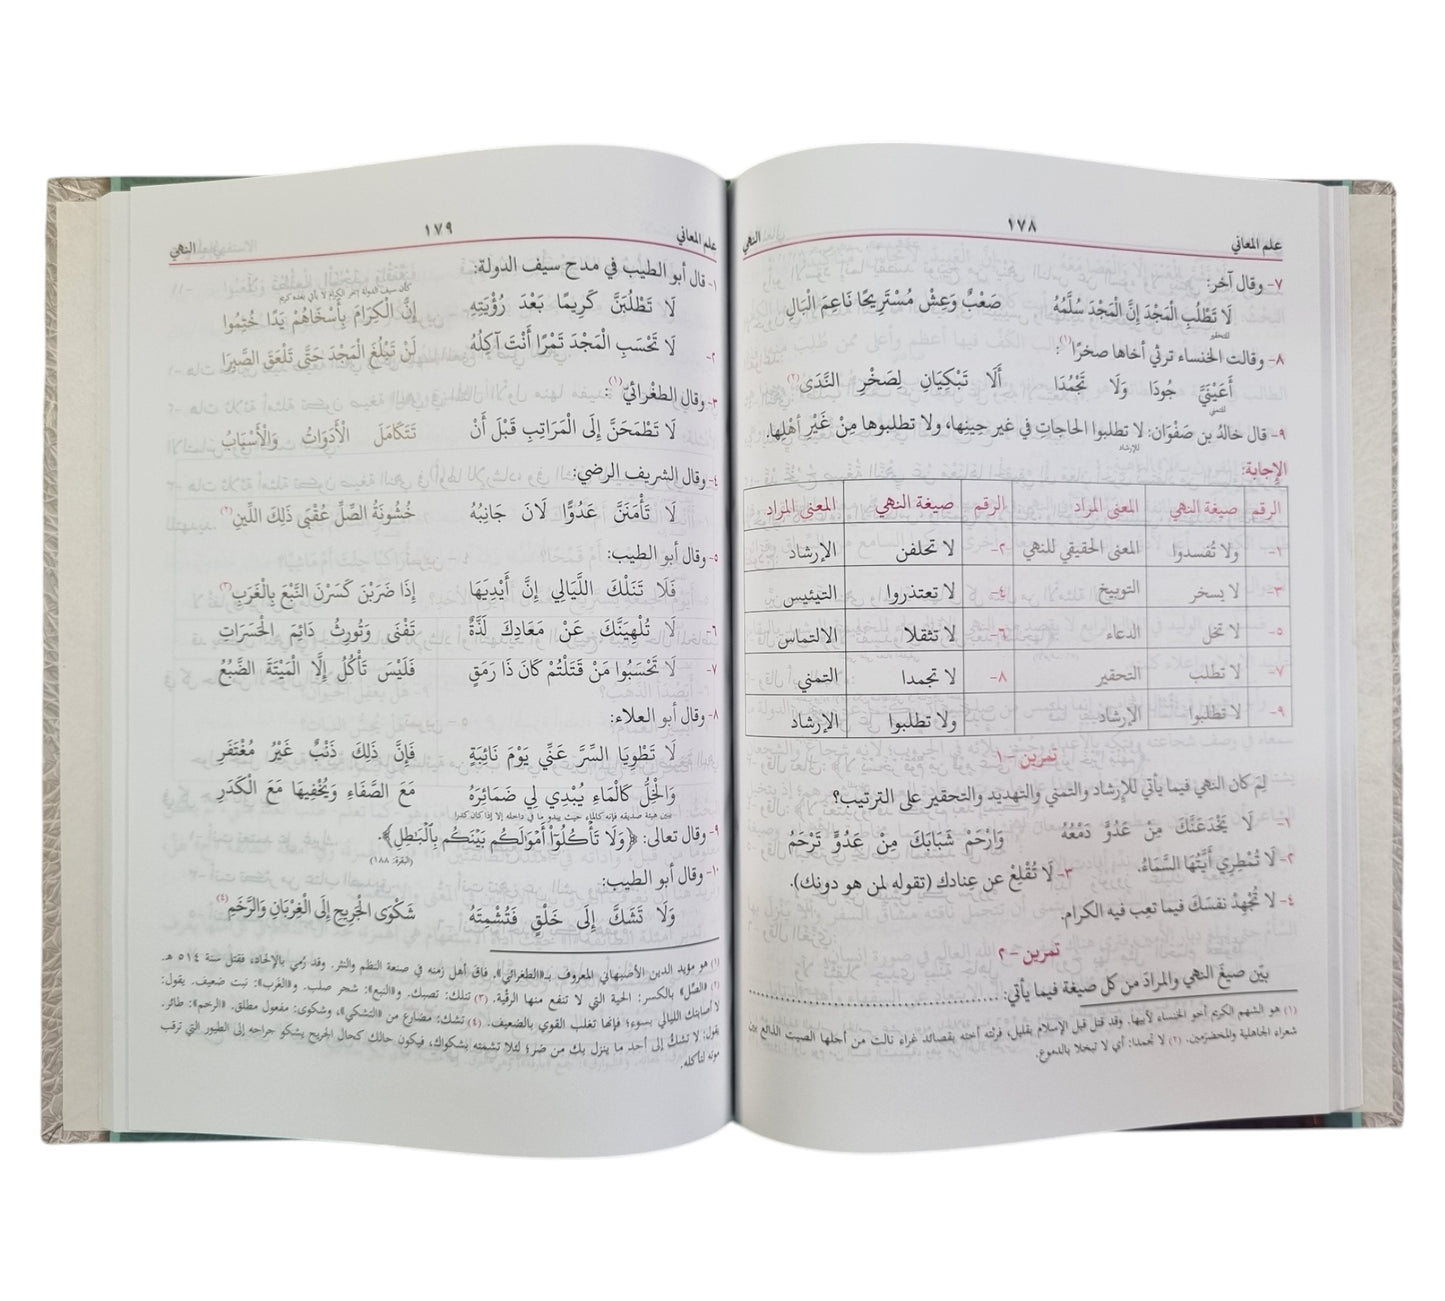 علم المعاني ١٧٨ النهي
٧- وقال آخر:
لَا تَطْلُبِ الْمَجْدَ إِنَّ الْمَجْدَ سُلَّمُهُ صَعْبٌ وَعِشْ مُسْتَرِيحًا نَاعِمَ الْبَالِ
للتحقير
٨- وقالت الخنساء ترثي أخاها صخرًا(١):
أَعَيْنَيَّ جُودَا وَلَا تَجْمُدَا أَلَا تَبْكِيَانِ لِصَخْرِ النَّدَى(٢)
للتمني
٩- قال خالدُ بن صَفْوَان: لا تطلبوا الحاجاتِ في غير حِينِها، ولا تطلبوها مِنْ غَيْرِ أهْلِها.
للإرشاد
الإجابة:
الرقم صيغة النهي المعنى المراد الرقم صيغة النهي المعنى المراد
١- ولا تُفسدوا المعنى الحقيقي للنهي ٢- لا تحلفن الإرشاد
٣- لا يسخر التوبيخ ٤- لا تعتذروا التيئيس
٥- لا تخل الدعاء ٦- لا تثقلا الالتماس
٧- لا تطلب التحقير ٨- لا تجمدا التمني
٩- لا تطلبوا الإرشاد ولا تطلبوا الإرشاد
تمرين – ١
لِمَ كان النهي فيما يأتي للإرشاد والتمني والتهديد والتحقير على الترتيب؟
١- لَا يَخْدَعَنَّكَ مِنْ عَدُوٍّ دَمْعُهُ وَارْحَمْ شَبَابَكَ مِنْ عَدُوٍّ تَرْحَمُ
٢- لَا تُمْطِرِي أَيَّتُهَا السَّمَاءُ. ٣- لَا تُقْلِعْ عن عِنادك (تقوله لمن هو دونك).
٤- لا تُجْهِدْ نفسَكَ فيما تعِب فيه الكرام.
تمرين – ٢
بيّن صيغَ النهي والمرادَ من كل صيغة فيما يأتي:
(١) هو الشهم الكريم أخو الخنساء لأبيها، وقد قتل قبل الإسلام بقليل، فرثته أخته بقصائد غراء نالت من أجلها الصيت الذائع بين
شعراء الجاهلية والمخضرمين. (٢) لا تجمدا: أي لا تبخلا بالدموع.
علم المعاني ١٧٩ النهي
١- قال أبو الطيب في مدح سيف الدولة:
لَا تَطْلُبَنَّ كَرِيمًا بَعْدَ رُؤْيَتِهِ إِنَّ الْكِرَامَ بِأَسْخَاهُمْ يَدًا خُتِمُوا
٢- لَا تَحْسَبِ الْمَجْدَ تَمْرًا أَنْتَ آكِلُهُ لَنْ تَبْلُغَ الْمَجْدَ حَتَّى تَلْعَقَ الصَّبِرَا
٣- وقال الطغْرائيّ(١):
لَا تَطْمَحَنَّ إِلَى الْمَرَاتِبِ قَبْلَ أَنْ تَتَكَامَلَ الْأَدَوَاتُ وَالْأَسْبَابُ
٤- وقال الشريف الرضي:
لَا تَأْمَنَنَّ عَدُوًّا لَانَ جَانِبُهُ خُشُونَةُ الصِّلِّ عُقْبَى ذَلِكَ اللِّينِ(٢)
٥- وقال أبو الطيب:
فَلَا تَنَلْكَ اللَّيَالِي إِنَّ أَيْدِيَهَا إِذَا ضَرَبْنَ كَسَرْنَ النَّبْعَ بِالْغَرَبِ(٣)
٦- لَا تُلْهِيَنَّكَ عَنْ مَعَادِكَ لَذَّةٌ تَفْنَى وَتُورِثُ دَائِمَ الْحَسَرَاتِ
٧- لَا تَحْسَبُوا مَنْ قَتَلْتُمْ كَانَ ذَا رَمَقٍ فَلَيْسَ تَأْكُلُ إِلَّا الْمَيْتَةَ الضَّبُعُ
٨- وقال أبو العلاء:
لَا تَطْوِيَا السِّرَّ عَنِّي يَوْمَ نَائِبَةٍ فَإِنَّ ذَلِكَ ذَنْبٌ غَيْرُ مُغْتَفَرِ
وَالْخِلُّ كَالْمَاءِ يُبْدِي لِي ضَمَائِرَهُ مَعَ الصَّفَاءِ وَيُخْفِيهَا مَعَ الْكَدَرِ
٩- وقال تعالى: ﴿وَلَا تَأْكُلُوٓاْ أَمْوَٰلَكُم بَيْنَكُم بِٱلْبَٰطِلِ﴾.
(البقرة: ١٨٨)
١٠- وقال أبو الطيب:
وَلَا تَشَكَّ إِلَى خَلْقٍ فَتُشْمِتَهُ شَكْوَى الْجَرِيحِ إِلَى الْغِرْبَانِ وَالرَّخَمِ(٤)
(١) هو مؤيد الدين الأصبهاني المعروف بـ«الطغرائي»، فاق أهل زمنه في صنعة النظم والنثر. وقد رُمي بالإلحاد، فقتل سنة ٥١٤ هـ.
(٢) «الصِّل» بالكسر: الحية التي لا تنفع منها الرقية. (٣) تنلك: تصبك. و«النبع»: شجر صلب. و«الغَرب»: نبت ضعيف. يقول:
لا أصابتك الليالي بسوء؛ فإنها تغلب القوي بالضعيف. (٤) تشك: مضارع من «التشكي»، وشكوى: مفعول مطلق. «الرخم»: طائر.
يقول: لا تشك إلى أحد ما ينزل بك من ضر؛ لئلا تشمته بشكواك، فيكون حالك كحال الجريح يشكو جراحه إلى الطيور التي ترقب
موته لتأكله.